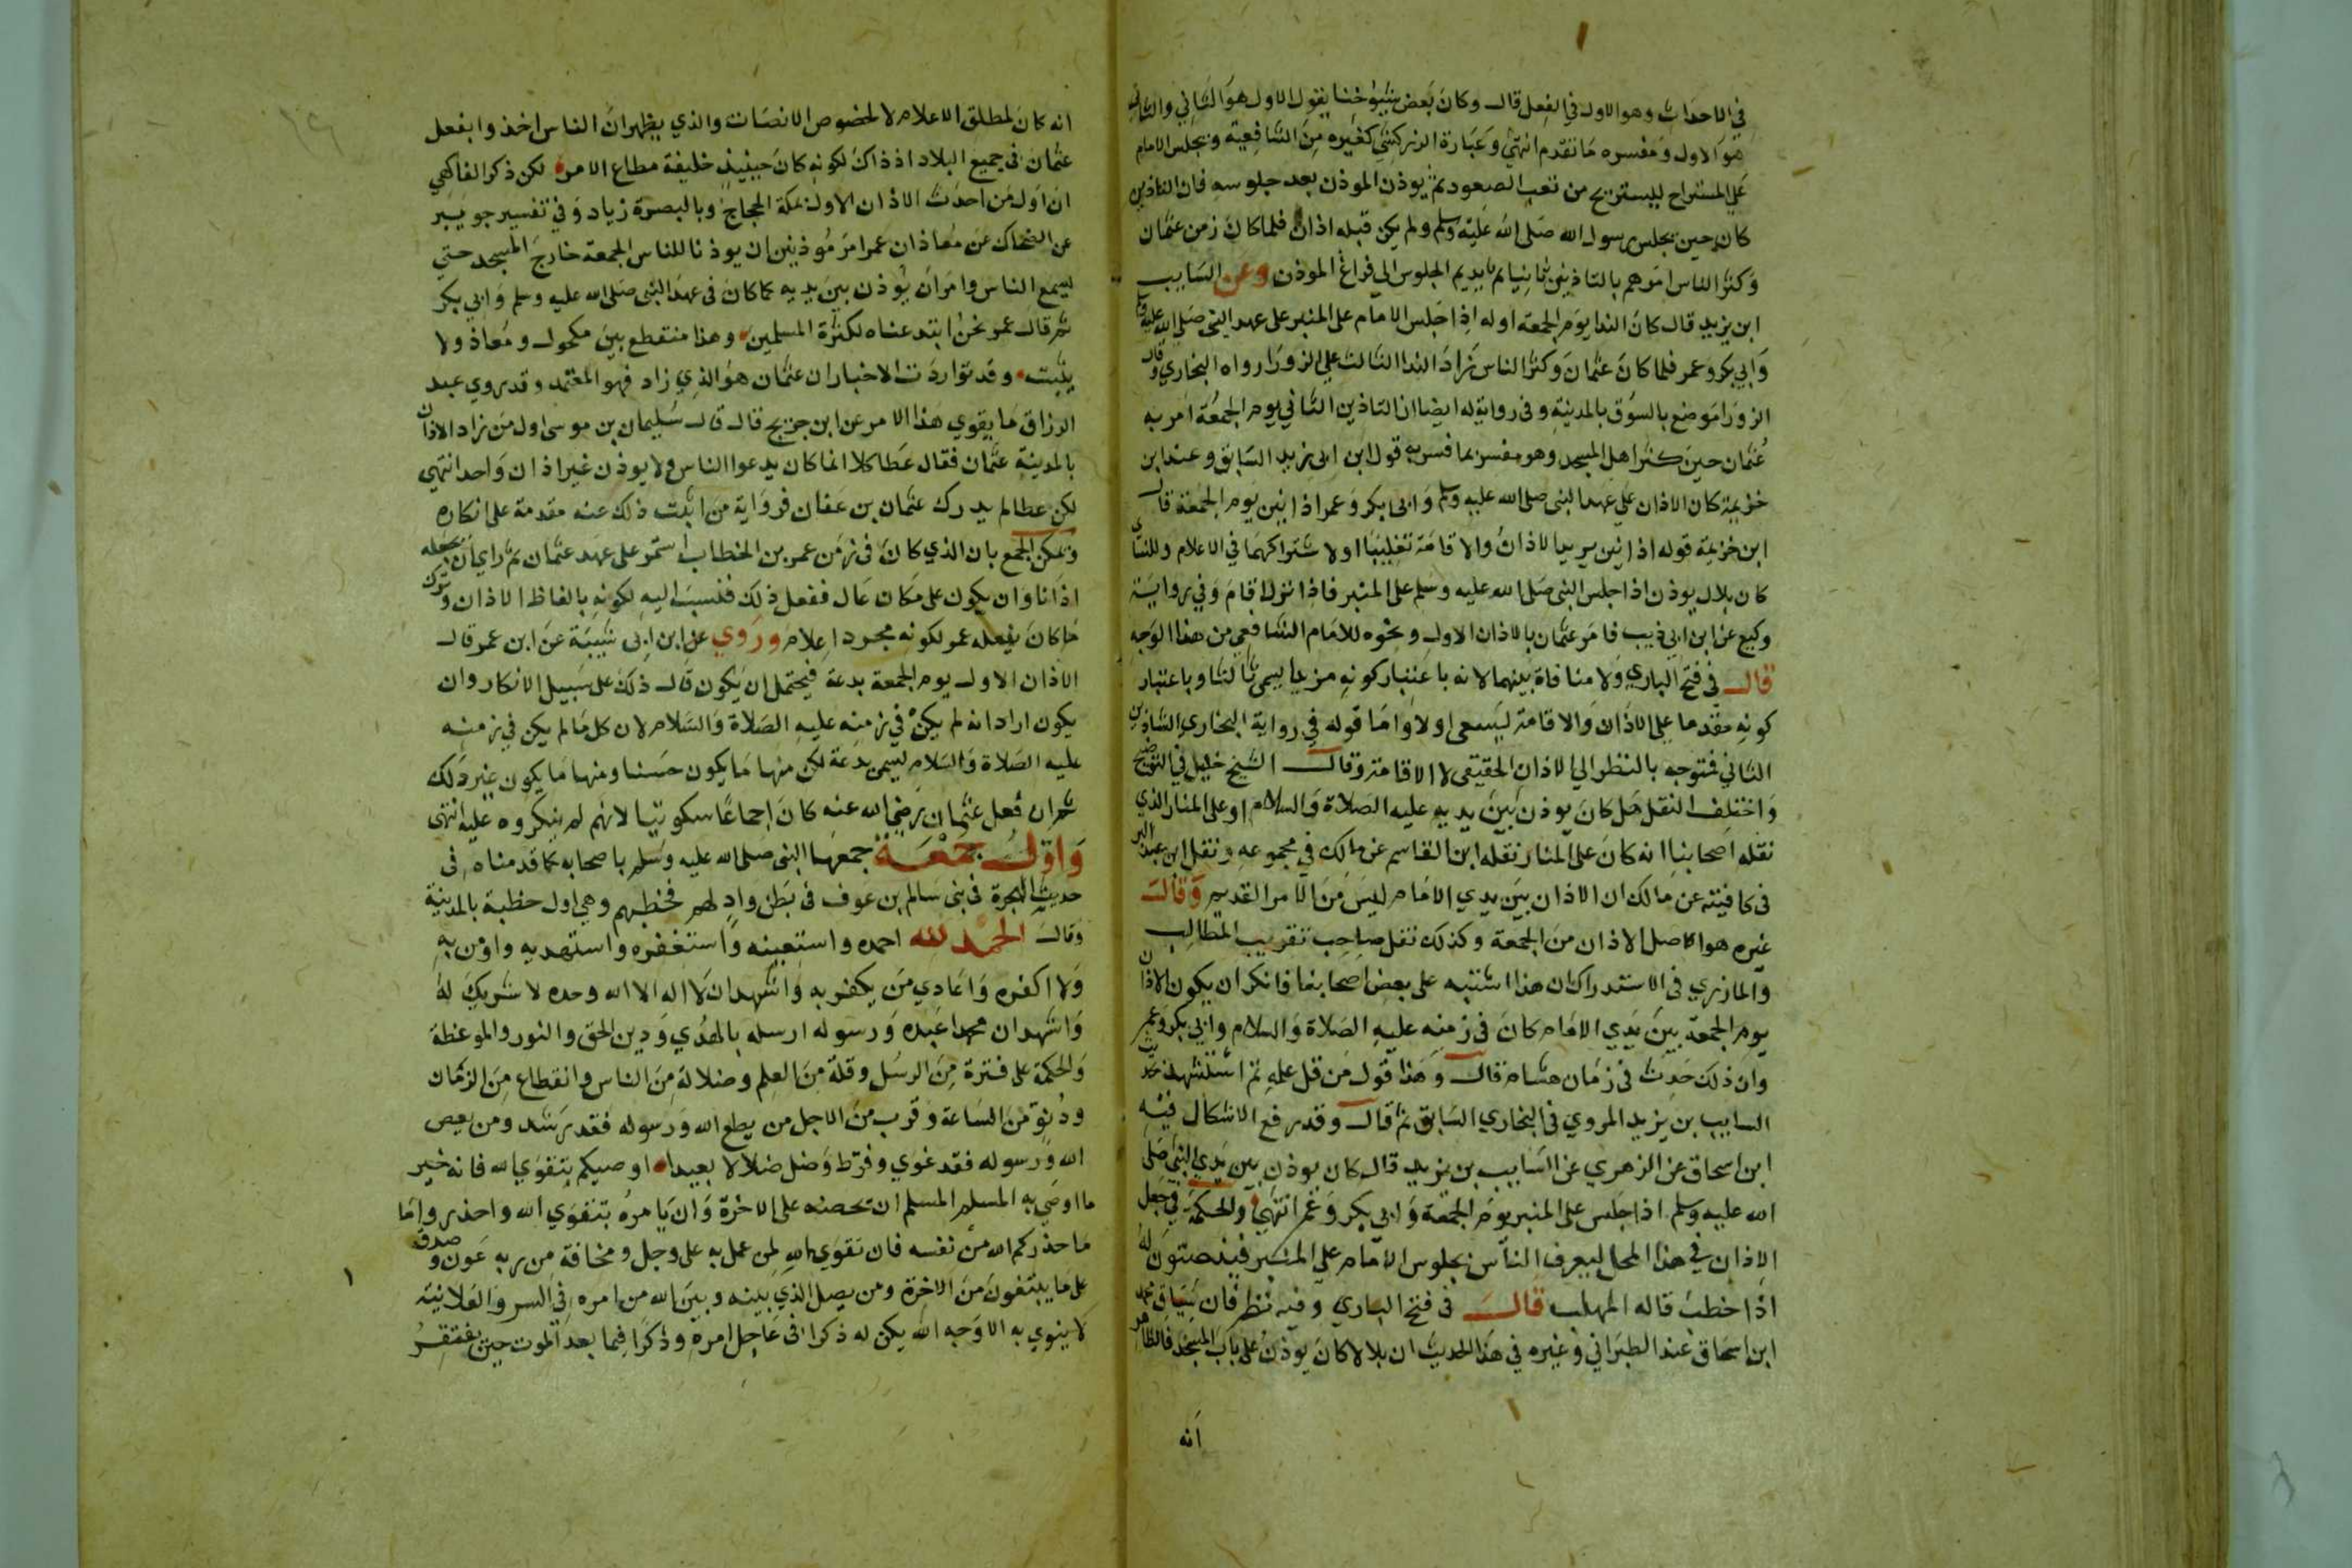 في الاحداث وهو الاول في الفعل قال وكان بعض شيوخنا يقول الاول هو الثاني والثاني
هو الاول ومفسره ما تقدم انتهى وعبارة الزركشي كغيره من الشافعية ويجلس الامام
على المستراح ليستريح من تعب الصعود ثم يوذن الموذن بعد جلوسه فان التاذين
كان حين يجلس رسول الله صلى الله عليه وسلم ولم يكن قبله اذان فلما كان زمن عثمان
وكثر الناس امرهم بالتاذين ثانيا ثم يديم الجلوس الى فراغ الموذن وعن السايب
ابن يزيد قال كان الندا يوم الجمعة اوله اذا جلس الامام على المنبر على عهد النبي صلى الله عليه وسلم
وابي بكر وعمر فلما كان عثمان وكثر الناس زاد الندا الثالث على الزورا رواه البخاري وقال
الزورا موضع بالسوق بالمدينة وفي رواية له ايضا ان التاذين الثاني يوم الجمعة امر به
عثمان حين كثر اهل المسجد وهو مفسر بما فسر به قول ابن ابي يزيد السابق وعند ابن
خزيمة كان الاذان على عهد النبي صلى الله عليه وسلم وابي بكر وعمر اذانين يوم الجمعة قال
ابن خزيمة قوله اذانين يريد الاذان والاقامة تغليبا او لاشتراكهما في الاعلام وللنساي
كان بلال يوذن اذا جلس النبي صلى الله عليه وسلم على المنبر فاذا نزل اقام وفي رواية
وكيع عن ابن ابي ذيب فامر عثمان بالاذان الاول ونحوه للامام الشافعي من هذا الوجه
قال في فتح الباري ولا منافاة بينهما لانه باعتبار كونه مزيدا يسمى ثالثا وباعتبار
كونه مقدما على الاذان والاقامة يسمى اولا واما قوله في رواية البخاري التاذين
الثاني فمتوجه بالنظر الى الاذان الحقيقي لا الاقامة وقال الشيخ خليل في التوضيح
واختلف النقل هل كان يوذن بين يديه عليه الصلاة والسلام او على المنار الذي
نقله اصحابنا انه كان على المنار نقله ابن القاسم عن مالك في مجموعه ونقل ابن عبد البر
في كافيته عن مالك ان الاذان بين يدي الامام ليس من الامر القديم وقال
غيره هو اصل الاذان من الجمعة وكذلك نقل صاحب تقريب المطالب
والمازري في الاستدراك ان هذا اشتبه على بعض اصحابنا فانكر ان يكون الاذان
يوم الجمعة بين يدي الامام كان في زمنه عليه الصلاة والسلام وابي بكر وعمر
وان ذلك حدث في زمان هشام قال وهذا قول من قل علمه ثم استشهد بحديث
السايب بن يزيد المروي في البخاري السابق ثم قال وقد رفع الاشكال فيه
ابن اسحاق عن الزهري عن السايب بن يزيد قال كان يوذن بين يدي النبي صلى
الله عليه وسلم اذا جلس على المنبر يوم الجمعة وابي بكر وعمر انتهى والحكمة في جعل
الاذان في هذا المحل ليعرف الناس بجلوس الامام على المنبر فينصتون له
اذا خطب قاله المهلب قال في فتح الباري وفيه نظر فان سياق محمد
ابن اسحاق عند الطبراني وغيره في هذا الحديث ان بلالا كان يوذن على باب المسجد فالظاهر
انه
انه كان لمطلق الاعلام لا لخصوص الانصات والذي يظهر ان الناس اخذوا بفعل
عثمان في جميع البلاد اذ ذاك لكونه كان حينيذ خليفة مطاع الامر لكن ذكر الفاكهي
ان اول من احدث الاذان الاول بمكة الحجاج وبالبصرة زياد وفي تفسير جويبر
عن الضحاك عن معاذ ان عمر امر موذنين ان يوذنا للناس الجمعة خارج المسجد حتى
يسمع الناس وامر ان يوذن بين يديه كما كان في عهد النبي صلى الله عليه وسلم وابي بكر
ثم قال عمر نحن ابتدعناه لكثرة المسلمين وهذا منقطع بين مكحول ومعاذ ولا
يثبت وقد تواردت الاخبار ان عثمان هو الذي زاد فهو المعتمد وقد روي عبد
الرزاق ما يقوي هذا الامر عن ابن جريج قال قال سليمان بن موسى اول من زاد الاذان
بالمدينة عثمان فقال عطا كلا انما كان يدعوا الناس ولا يوذن غير اذان واحد انتهى
لكن عطا لم يدرك عثمان بن عفان فرواية من اثبت ذلك عنه مقدمة على انكاره
ويمكن الجمع بان الذي كان في زمن عمر بن الخطاب استمر على عهد عثمان ثم راي ان يجعله
اذانا وان يكون على مكان عال ففعل ذلك فنسب اليه لكونه بالفاظ الاذان وترك
ما كان يفعله عمر لكونه مجرد اعلام وروي عن ابن ابي شيبة عن ابن عمر قال
الاذان الاول يوم الجمعة بدعة فيحتمل ان يكون قال ذلك على سبيل الانكار وان
يكون اراد انه لم يكن في زمنه عليه الصلاة والسلام لان كل ما لم يكن في زمنه
عليه الصلاة والسلام يسمى بدعة لكن منها ما يكون حسنا ومنها ما يكون غير ذلك
ثم ان فعل عثمان رضي الله عنه كان اجماعا سكوتيا لانهم لم ينكروه عليه انتهى
واول جمعة جمعها النبي صلى الله عليه وسلم باصحابه كما قدمناه في
حديث الهجرة في بني سالم بن عوف في بطن واد لهم فخطبهم وهي اول خطبة بالمدينة
وقال الحمد لله احمده واستعينه واستغفره واستهديه واومن به
ولا اكفره واعادي من يكفر به واشهد ان لا اله الا الله وحده لا شريك له
واشهد ان محمدا عبده ورسوله ارسله بالهدي ودين الحق والنور والموعظة
والحكمة على فترة من الرسل وقلة من العلم وضلالة من الناس وانقطاع من الزمان
ودنو من الساعة وقرب من الاجل من يطع الله ورسوله فقد رشد ومن يعص
الله ورسوله فقد غوي وفرط وضل ضلالا بعيدا اوصيكم بتقوي الله فانه خير
ما اوصي به المسلم المسلم ان يحضه على الاخرة وان يامره بتقوي الله واحذروا ما
ما حذركم الله من نفسه فان تقوي الله لمن عمل به على وجل ومخافة من ربه عون وصدق
على ما يبتغون من الاخرة ومن يصل الذي بينه وبين الله من امره في السر والعلانية
لا ينوي به الا وجه الله يكن له ذكرا في عاجل امره وذكرا فيما بعد الموت حين يفتقر